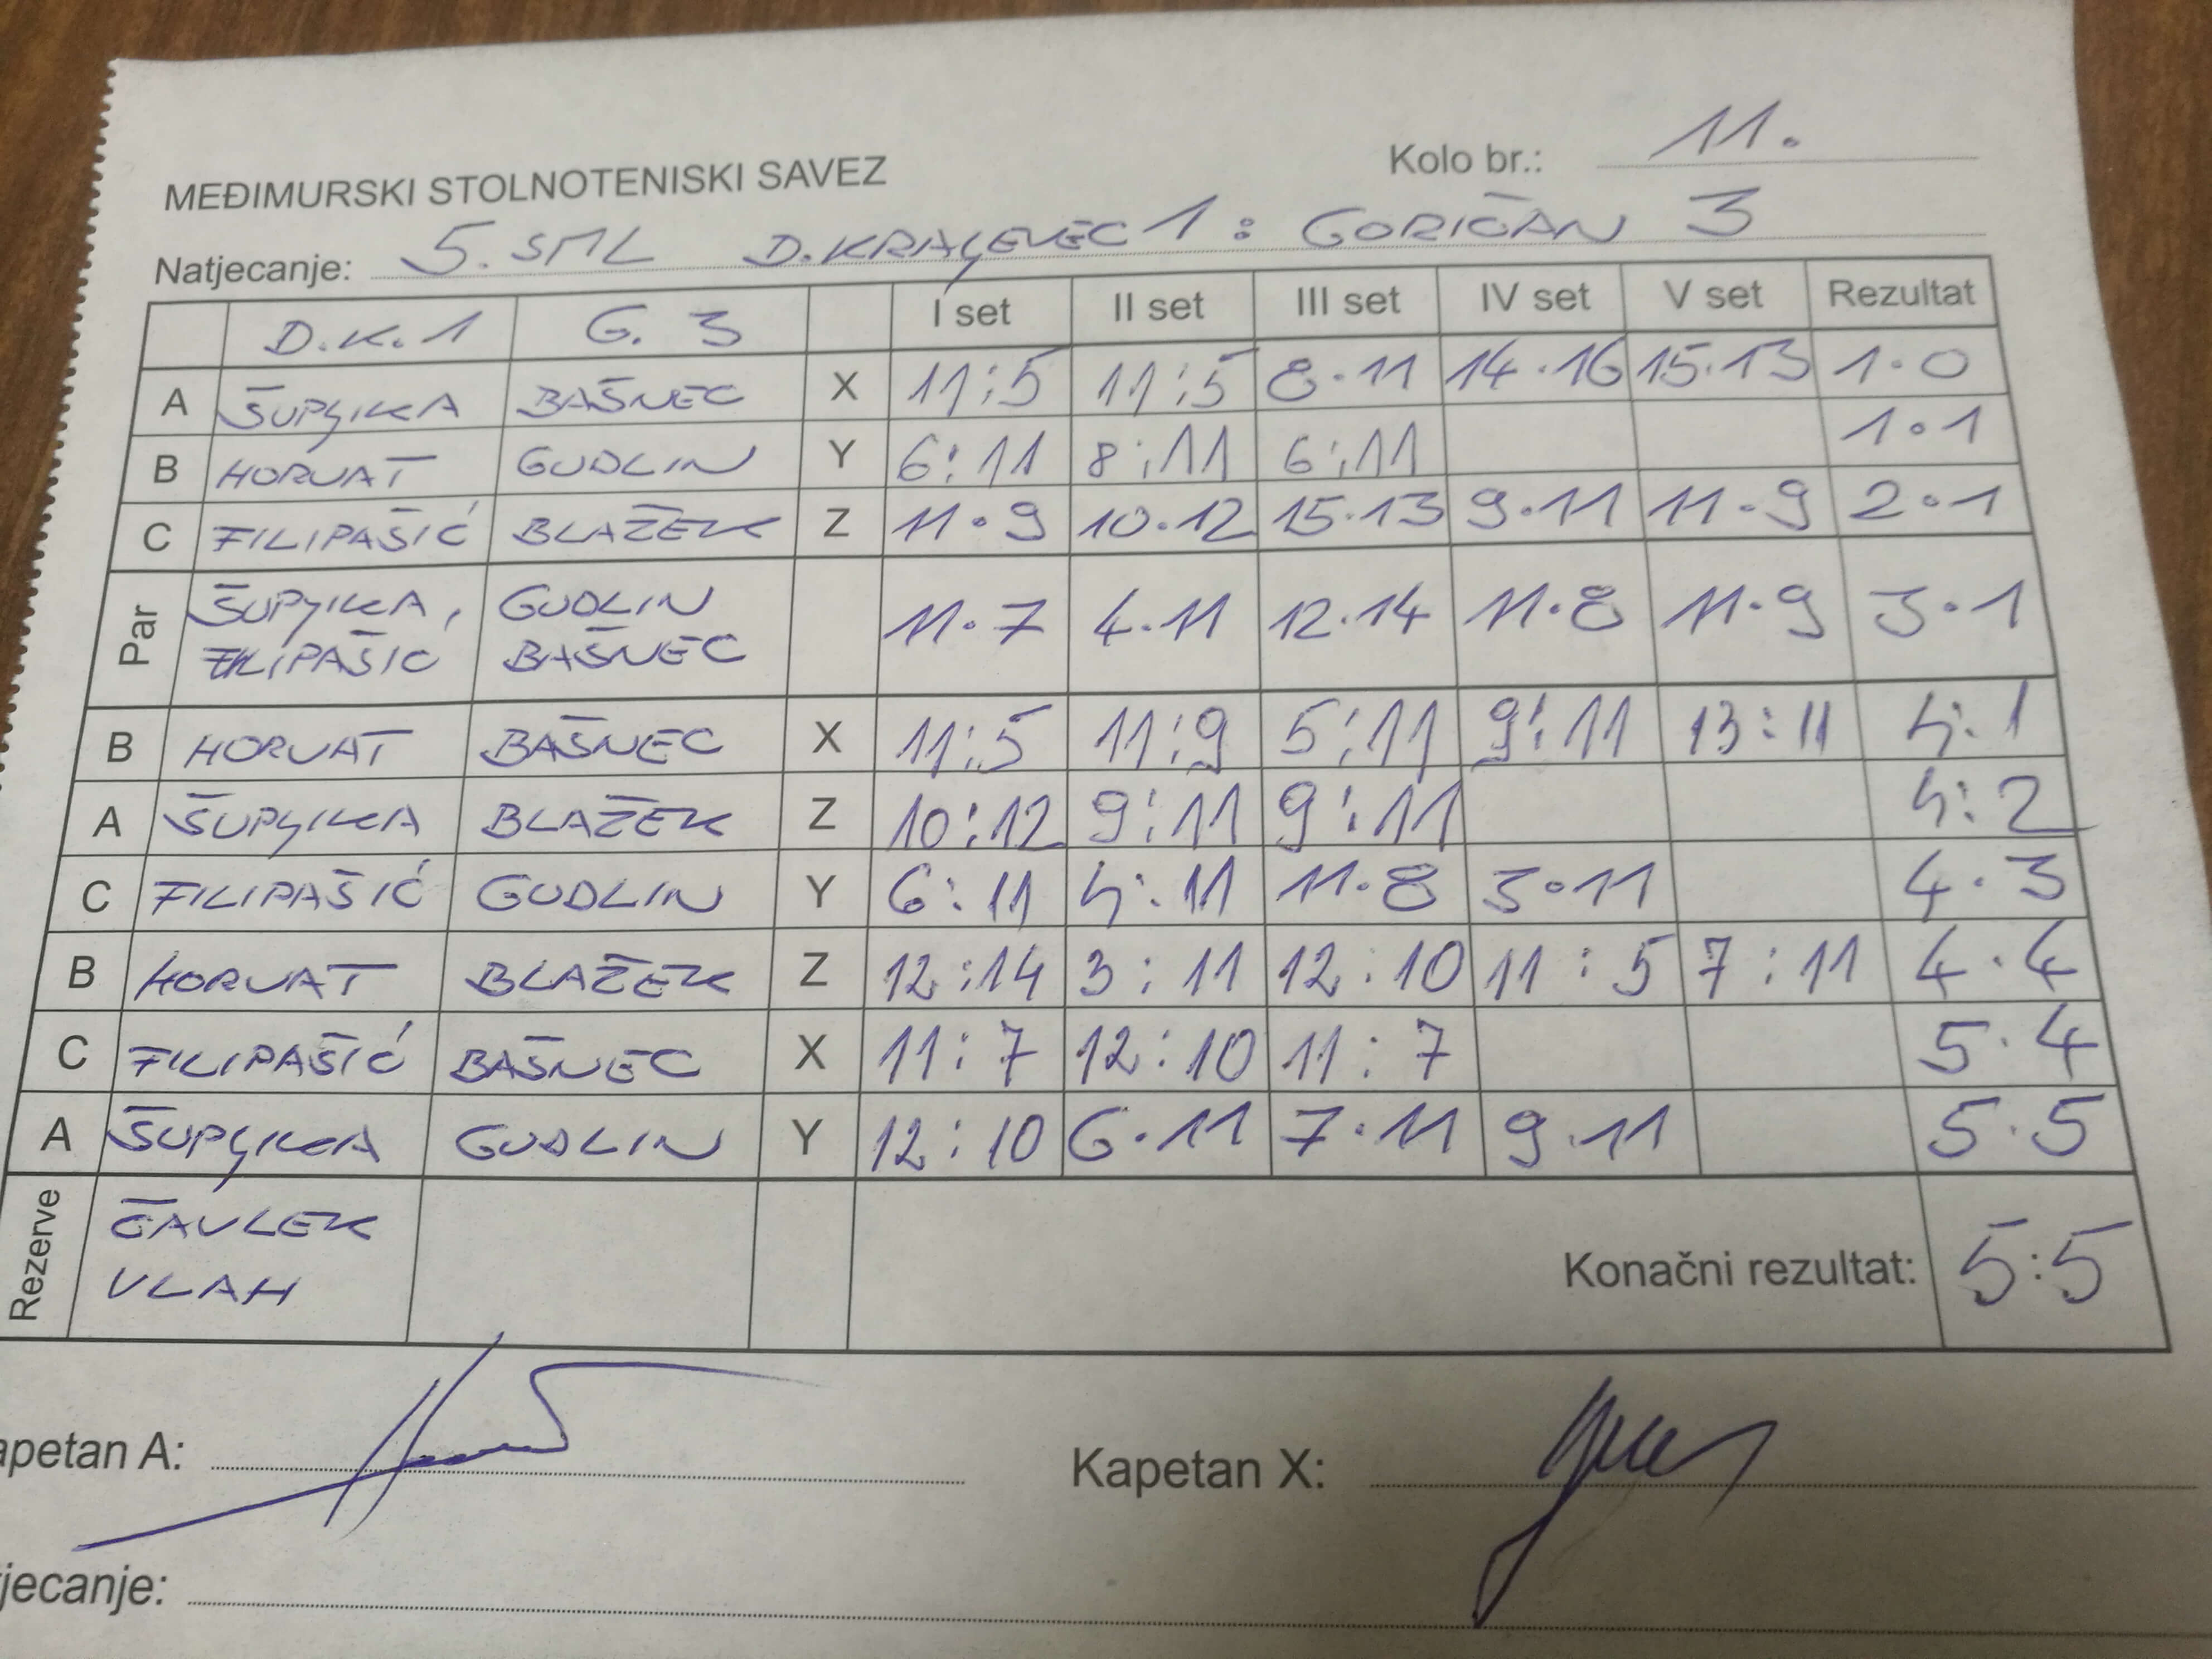 Kolo br.: 11.
MEĐIMURSKI STOLNOTENISKI SAVEZ
Natjecanje: 5. SML D. KRALJEVEC 1 : GORIČAN 3
D.K. 1 G. 3 I set II set III set IV set V set Rezultat
A ŠUPLJIKA BAŠNEC X 11:5 11:5 8·11 14·16 15·13 1·0
B HORVAT GUDLIN Y 6:11 8:11 6:11 1·1
C FILIPAŠIĆ BLAŽEK Z 11·9 10·12 15·13 9·11 11·9 2·1
Par ŠUPLJIKA, GUDLIN 11·7 4·11 12·14 11·8 11·9 3·1
FILIPAŠIĆ BAŠNEC
B HORVAT BAŠNEC X 11:5 11:9 5:11 9:11 13:11 4:1
A ŠUPLJIKA BLAŽEK Z 10:12 9:11 9:11 4:2
C FILIPAŠIĆ GUDLIN Y 6:11 4:11 11·8 3·11 4·3
B HORVAT BLAŽEK Z 12:14 3:11 12:10 11:5 7:11 4·4
C FILIPAŠIĆ BAŠNEC X 11:7 12:10 11:7 5·4
A ŠUPLJIKA GUDLIN Y 12:10 6·11 7·11 9·11 5·5
Rezerve ČAVLEK
VLAH
Konačni rezultat: 5:5
apetan A:
Kapetan X:
jecanje: